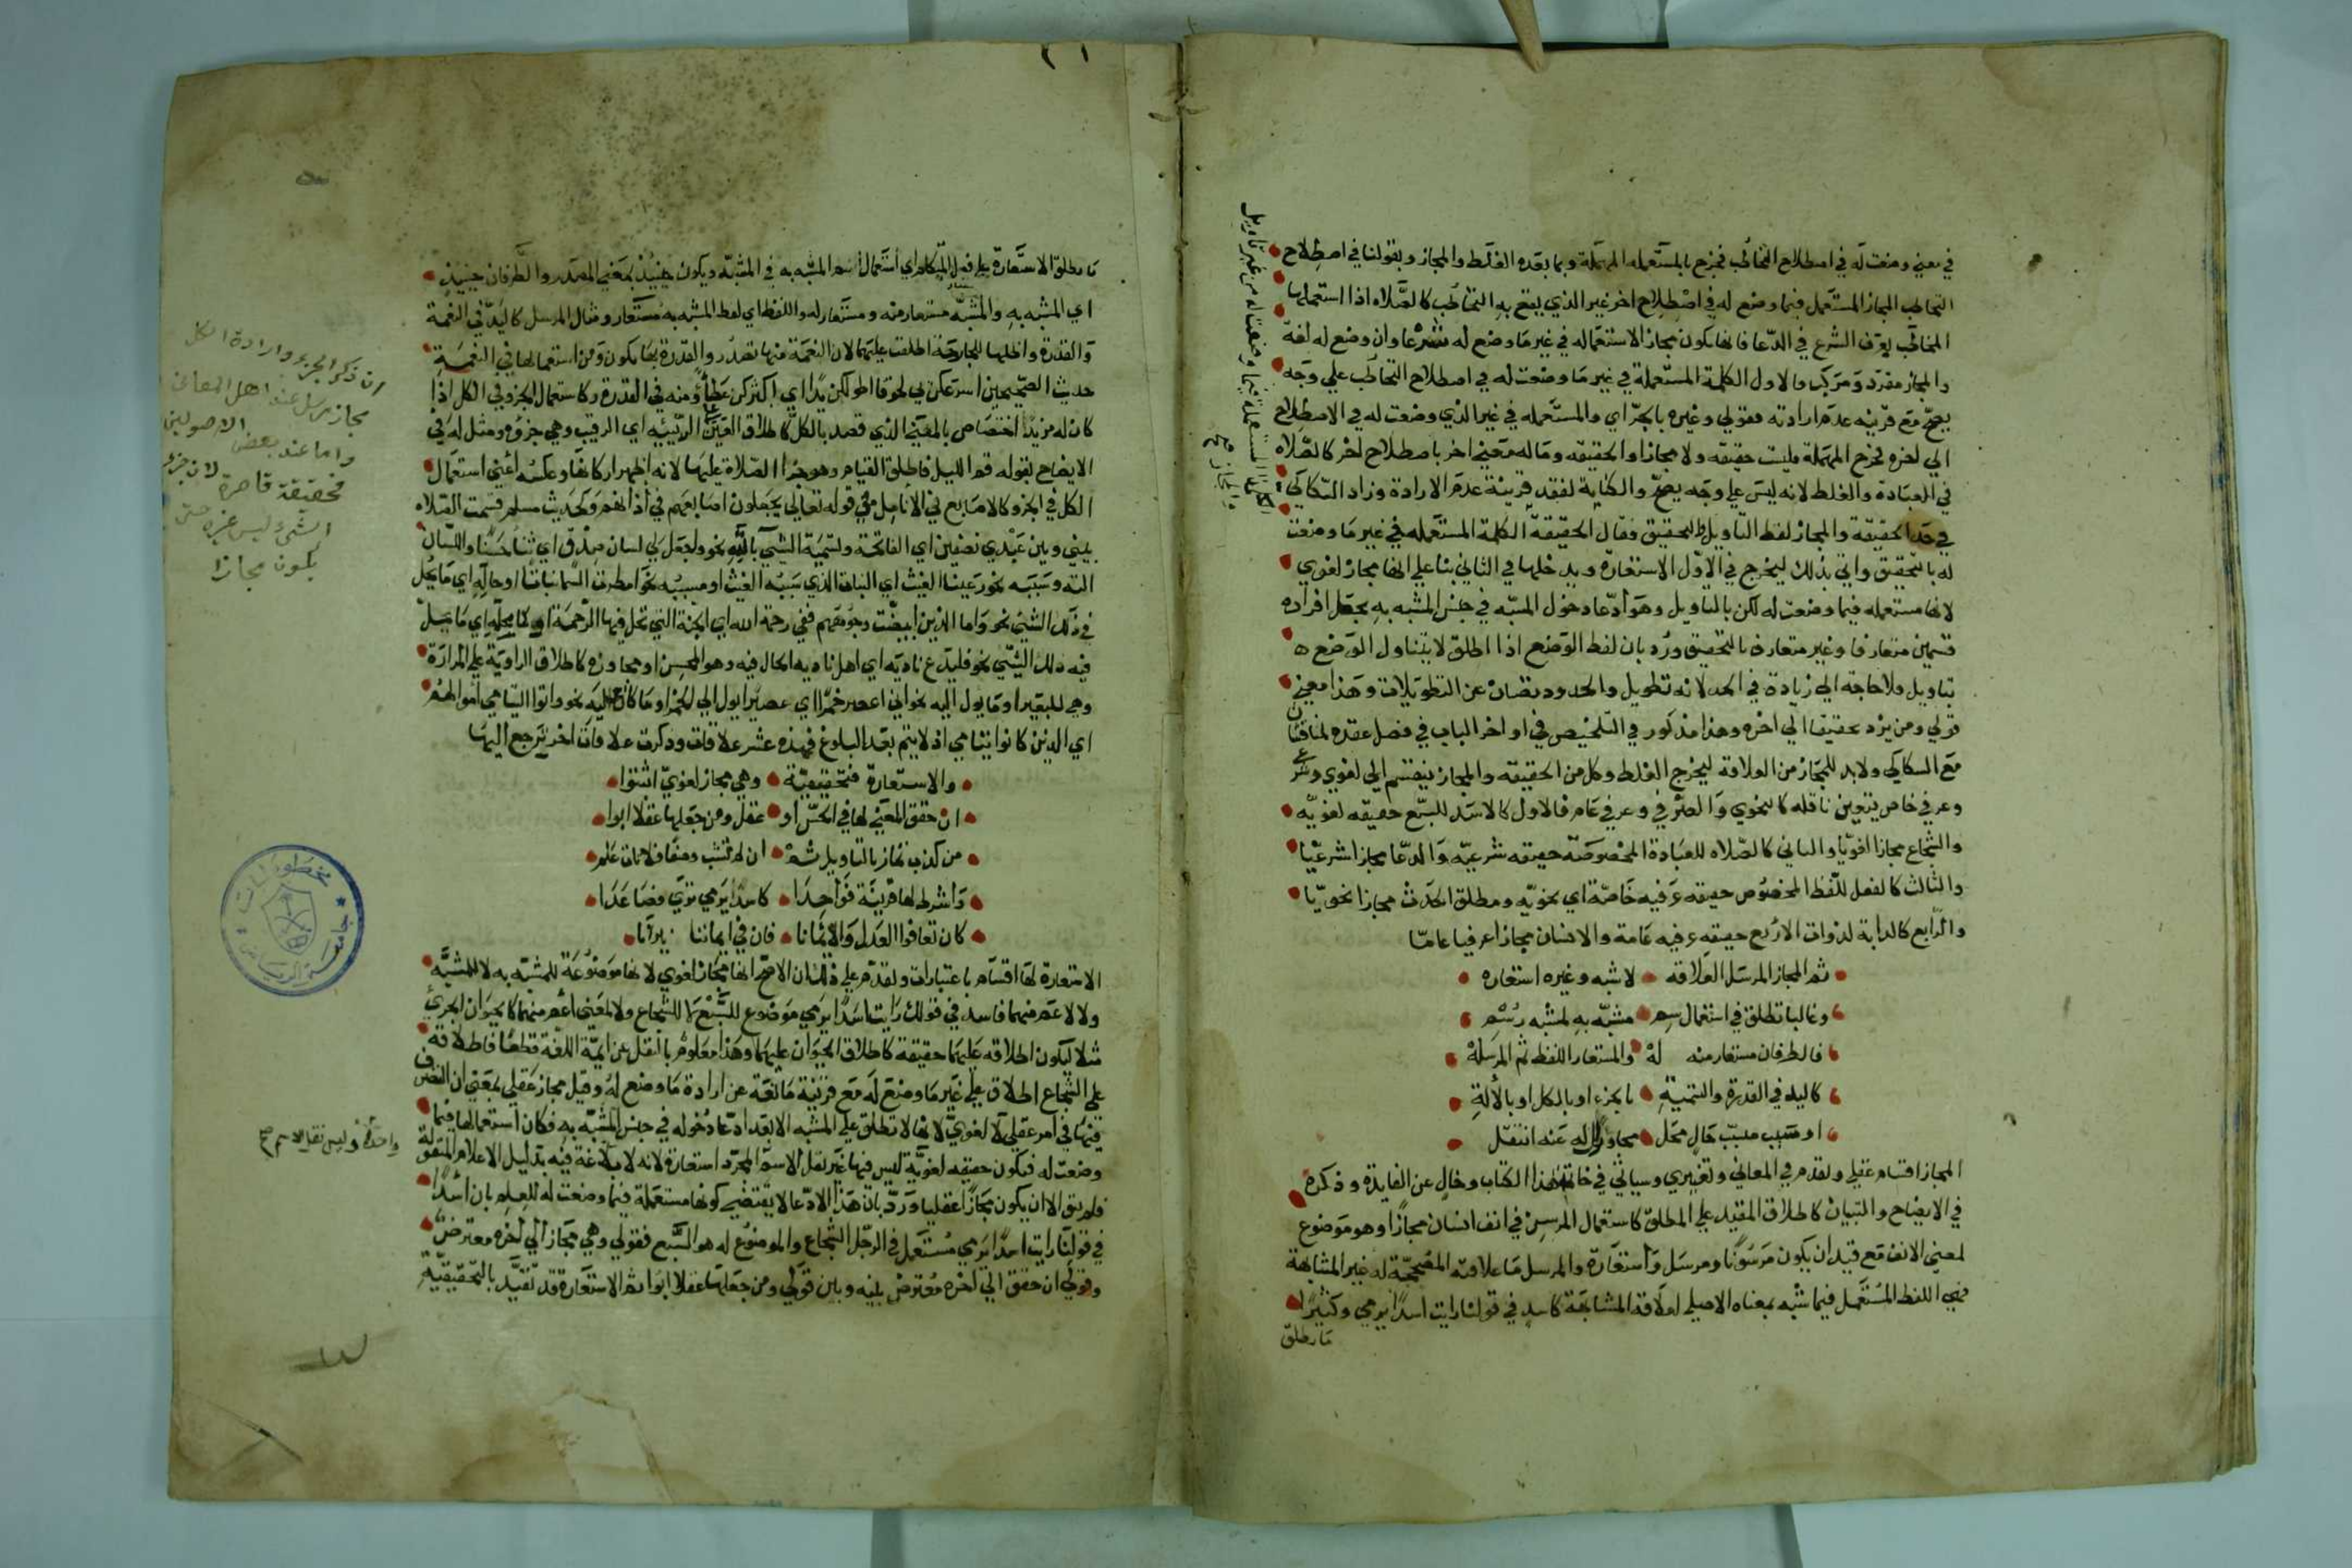 في معني وضعت له في اصطلاح التخاطب فخرج بالمستعمله المهملة وبما بعده الغلط والمجاز وبقولنا في اصطلاح
التخاطب المجاز المستعمل فيما وضع له في اصطلاح اخر غير الذي يقع به التخاطب كالصلاه اذا استعملها
المخاطب بعرف الشرع في الدعا فانها تكون مجازا لاستعماله في غير ما وضع له شرعا وان وضع له لغة
والمجاز مفرد ومركب فالاول الكلمة المستعملة في غير ما وضعت له في اصطلاح التخاطب علي وجه
يصح مع قرينه عدم ارادته فقولي وغيره بالجر اي والمستعمله في غير الذي وضعت له في الاصطلاح
الي اخره فخرج المهملة فليست حقيقه ولا مجازا والحقيقه وما له معني اخر باصطلاح اخر كالصلاه
في العبادة والغلط لانه ليس علي وجه يصح والكناية لفقد قرينة عدم الارادة وزاد السكاكي
في حد الحقيقة والمجاز لفظ التاويل والتحقيق فقال الحقيقة الكلمة المستعمله في غير ما وضعت
له بالتحقيق واتي بذلك ليخرج في الاول الاستعارة ويدخلها في الثاني بنا علي انها مجاز لغوي
لانها مستعمله فيما وضعت له لكن بالتاويل وهو ادعا دخول المشبه في جنس المشبه به بجعل افراده
قسمين متعارفا وغير متعارف بالتحقيق ورد بان لفظ الوضع اذا اطلق لا يتناول الوضع
بتاويل فلا حاجة الي زيادة في الحد لانه تطويل والحدود تصان عن التطويلات وهذا معني
قولي ومن يزد تحقيقا الي اخره وهذا مذكور في التلخيص في اواخر الباب في فصل عقده
مع السكاكي ولا بد للمجاز من العلاقة ليخرج الغلط وكل من الحقيقه والمجاز ينقسم الي لغوي وشرعي
وعرفي خاص يتعين ناقله كالنحوي والصرفي وعرفي عام فالاول كالاسد للسبع حقيقه لغويه
والشجاع مجازا لغويا والثاني كالصلاه للعبادة المخصوصة حقيقه شرعيه والدعا مجازا شرعيا
والثالث كالفعل للفظ المخصوص حقيقه عرفيه خاصة اي نحويه ومطلق الحدث مجازا نحويا
والرابع كالدابة لذوات الاربع حقيقه عرفيه عامة والانسان مجازا عرفيا عاما
ثم المجاز المرسل العلاقه لا شبه وغيره استعاره
وغالبا تطلق في استعمال سم مشبه به لمشبه رسم
فالطرفان مستعار منه له والمستعار اللفظ ثم المرسله
كاليد في القدرة والتسمية بالجزء او بالكل او بالآلة
او سبب مسبب حال محل مجاور آل له عنه انتقل
المجاز اقسام عقلي وتقدم في المعاني وتغييري وسياتي في خاتمة هذا الكتاب وخال عن الفايدة وذكره
في الايضاح والتبيان كاطلاق المقيد علي المطلق كاستعمال المرسن في انف انسان مجازا وهو موضوع
لمعني الانف مع قيد ان يكون مرسونا ومرسل واستعارة والمرسل ما علاقته المصححة له غير المشابهة
فهي اللفظ المستعمل فيما شبه بمعناه الاصلي لعلاقة المشابهة كاسد في قولنا رايت اسدا يرمي وكثيرا
ما يطلق
ما يطلق الاستعارة علي فعل المتكلم اي استعمال اسم المشبه به في المشبه ويكون حينيذ بمعني المصدر والطرفان حينيذ
اي المشبه به والمشبه مستعار منه ومستعار له واللفظ اي لفظ المشبه به مستعار ومثال المرسل كاليد في النعمة
والقدرة واصلها للجارحة اطلقت عليهما لان النعمة منها تصدر والقدرة بها تكون ومن استعمالها في النعمة
حديث الصحيحين اسرعكن بي لحوقا اطولكن يدا اي اكثركن عطا ومنه في القدرة وكاستعمال الجزو في الكل اذا
كان له مزيد اختصاص بالمعني الذي قصد بالكل كاطلاق العين علي الربيئيه اي الرقيب وهي جزؤه ومثل له في
الايضاح بقوله قم الليل فاطلق القيام وهو جزا الصلاة عليها لانه اظهر اركانها وعكسه اعني استعمال
الكل في الجزو كالاصابع في الانامل في قوله تعالي يجعلون اصابعهم في اذانهم وكحديث مسلم قسمت الصلاه
بيني وبين عبدي نصفين اي الفاتحة وتسمية الشي بآلته نحو واجعل لي لسان صدق اي ثناء حسنا واللسان
الته وسببه نحو رعينا الغيث اي النبات الذي سببه الغيث او مسببه نحو امطرت السما نباتا او حاله اي ما يحل
في ذلك الشي نحو واما الذين ابيضت وجوههم ففي رحمة الله اي الجنة التي تحل فيها الرحمة او محله اي ما يحل
فيه ذلك الشي نحو فليدع ناديه اي اهل ناديه الحال فيه وهو المجلس او مجاوره كاطلاق الراوية علي المزادة
وهي للبعير او ما يول اليه نحو اني اعصر خمرا اي عصيرا يول الي الخمر او ما كان عليه نحو واتوا اليتامي اموالهم
اي الذين كانوا يتامي اذ لا يتم بعد البلوغ فهذه عشر علاقات وذكرت علاقات اخر ترجع اليها
والاستعارة فتحقيقية وهي مجاز لغوي اثبتوا
ان حقق المعني لها في الحس او عقل ومن جعلها عقلا ابوا
من كذب تماز بالتاويل ثم ان لم تنسب وصفا فلا تات علم
واشرط لها قرينة فواحدا كاسد يرمي تري فصاعدا
كان تعافوا العدل والايمانا فان في ايماننا نيرانا
الاستعارة لها اقسام باعتبارات ولقدم علي ذلك ان الاصح انها مجاز لغوي لانها موضوعة للمشبه به لا للمشبه
ولا لاعم منهما فاسد في قولك رايت اسدا يرمي موضوع للسبع لا للشجاع ولا لمعني اعم منهما كالحيوان الجري
مثلا ليكون اطلاقه عليهما حقيقة كاطلاق الحيوان عليهما وهذا معلوم بالنقل عن ايمة اللغة قطعا فاطلاقه
علي الشجاع اطلاق علي غير ما وضع له مع قرينة مانعة عن ارادة ما وضع له وقيل مجاز عقلي بمعني ان التصرف
فيها في امر عقلي لا لغوي لانها لا تطلق علي المشبه الا بعد ادعا دخوله في جنس المشبه به فكان استعمالها فيما
وضعت له فيكون حقيقه لغوية ليس فيها غير نقل الاسم المجرد استعارة لانه لا بلاغة فيه بدليل الاعلام المنقولة
فلم يبق الا ان يكون مجازا عقليا ورد بان هذا الادعا لا يقتضي كونها مستعملة فيما وضعت له للعلم بان اسدا
في قولنا رايت اسدا يرمي مستعمل في الرجل الشجاع والموضوع له هو السبع فقولي وهي مجاز الي اخره معترض
وقولي ان حقق الي اخره معترض بينه وبين قولي ومن جعلها عقلا ابوا ثم الاستعارة قد تقيد بالتحقيقية
ان ذكر الجزء وارادة الكل
مجاز مرسل عند اهل المعاني
واما عند بعض الاصوليين
فحقيقة قاصرة لان جزء
الشيء ليس غيره حتى
يكون مجازا